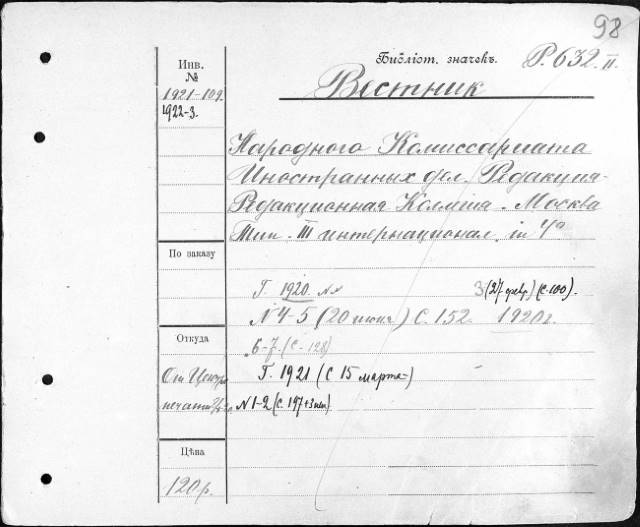 98
Библіот. значекъ. Р. 632. II.
Инв.
№
Вестник
1921-109
1922-3.
Народного Комиссариата
Иностранных дел. Редакция-
Редакционная Коллегия. Москва
Тип. III интернационал. in 4°
По заказу
Г. 1920. №№ 3 (27 февр.) (с. 100).
№ 4-5 (20 июня) С. 152. 1920 г.
Откуда
6-7. (С. 128)
От Центро
Г. 1921 (С 15 марта-)
печати
№ 1-2 (С. 197+3 нен)
Цѣна
120 р.